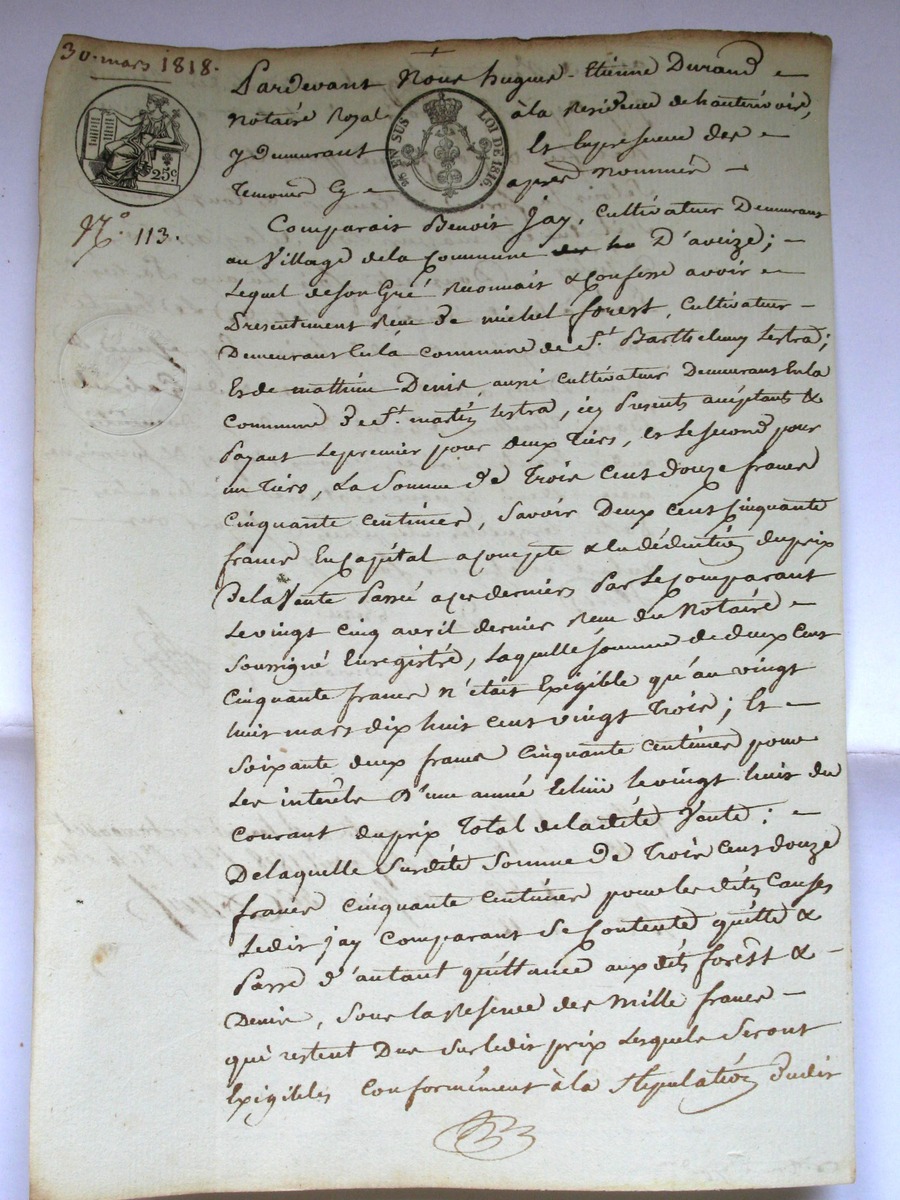 30. mars 1818.
Pardevant Nous hugues-Etienne Durand
notaire Royal à la Résidence de hauterivoire,
y demeurant Et En presence des
Temoins Cy après nommés
25c.
EN SUS LOI DE 1816.
N.o 113.
Comparait Benoit Jay, Cultivateur Demeurant
au Village de la Commune D'aveize;
Lequel de son Gré Reconnait & Confesse avoir
Presentement Recu de michel forest, Cultivateur
Demeurant En la Commune de St. Barthelemy Lestra;
Et de mathieu Denis, aussi Cultivateur Demeurant En la
Commune de St. martin Lestra, icy Presents acceptants &
Payant Le premier pour deux Tiers, Et Le second pour
un Tiers, La Somme de Trois Cent douze francs
Cinquante Centimes, Savoir Deux Cent Cinquante
francs En Capital a Compte & En déduction du prix
De la Vente Passé a ces derniers Par Le Comparant
Le vingt Cinq avril dernier Recu du Notaire
Soussigné Enregistré, Laquelle somme de deux Cent
Cinquante francs n'était Exigible qu'au vingt
huit mars dix huit Cent vingt Trois; Et
Soixante deux francs Cinquante Centimes pour
Les intérêts D'une année Echüe Le vingt huit du
Courant du prix Total de la dite Vente;
De laquelle Surdite Somme de Trois Cent douze
francs Cinquante Centimes pour les dites Causes
Ledit Jay Comparant Se Contente quitte &
Passe d'autant quittance aux dits forest &
Denis, Sous la Reserve des Mille francs
qui restent Dus Sur ledit prix Lesquels Seront
Exigibles Conformément à la Stipulation Dudit